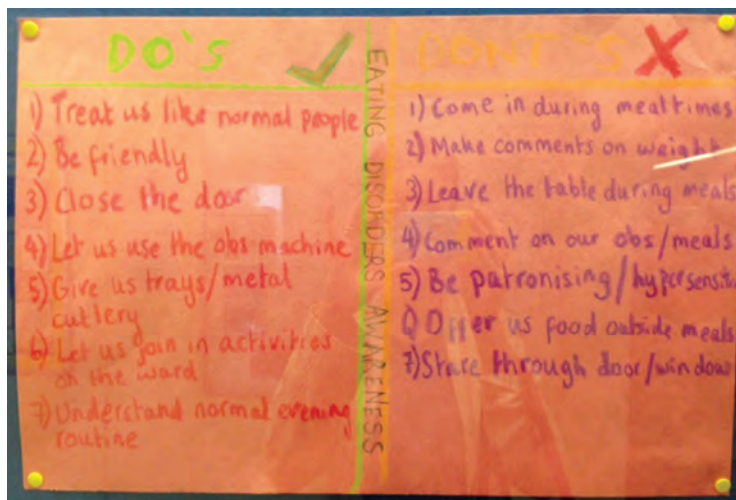 DO'S
1) Treat us like normal people
2) Be friendly
3) Close the door
4) Let us use the obs machine
5) Give us trays/metal
cutlery
6) Let us join in activities
on the ward
7) Understand normal evening
routine
EATING DISORDERS AWARENESS
DONT'S
1) Come in during mealtimes
2) Make comments on weight
3) Leave the table during meals
4) Comment on our obs/meals
5) Be patronising/hypersensiti
6) Offer us food outside meals
7) Stare through door/window